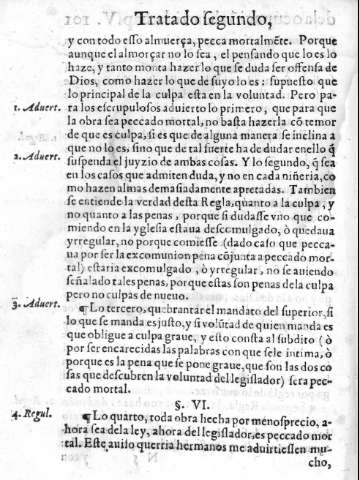 Tratado segundo,
y con todo esso almuerça, pecca mortalmẽte. Porque
aunque el almorçar no lo sea, el pensando que lo es lo
haze, y tanto monta hazer lo que se duda ser offensa de
Dios, como hazer lo que de suyo lo es: supuesto que
lo principal de la culpa está en la voluntad. Pero pa-
1. Aduert. ra los escrupulosos aduierto lo primero, que para que
la obra sea peccado mortal, no basta hazerla cõ temor
de que es culpa, si es que de alguna manera se inclina a
2. Aduert. que no lo es, sino que de tal suerte ha de dudar en ello q̃
suspenda el juyzio de ambas cosas. Y lo segundo, q̃ sea
en los casos que admiten duda, y no en cada niñeria, co
mo hazen almas demasiadamente apretadas. Tambien
se entiende la verdad desta Regla, quanto a la culpa, y
no quanto a las penas, porque si dudasse vno que co-
miendo en la yglesia estaua descomulgado, ò quedaua
yrregular, no porque comiesse (dado caso que pecca-
ua por ser la excomunion pena cõjunta a peccado mor-
tal) estaria excomulgado, ò yrregular, no se auiendo
señalado tales penas, porque estas son penas de la culpa
pero no culpas de nueuo.
3. Aduert. ¶ Lo tercero, quebrantar el mandato del superior, si
lo que se manda es justo, y si volũtad de quien manda es
que obligue a culpa graue, y esto consta al subdito (ò
por ser encarecidas las palabras con que se le intima, ò
porque es la pena que se pone graue, que son las dos co
sas que descubren la voluntad del legislador) sera pec-
cado mortal.
§. VI.
4. Regul. ¶ Lo quarto, toda obra hecha por menosprecio, a-
hora sea de la ley, ahora del legislador, es peccado mor
tal. Este auiso querria hermanos me aduirtiessen mu-
cho,